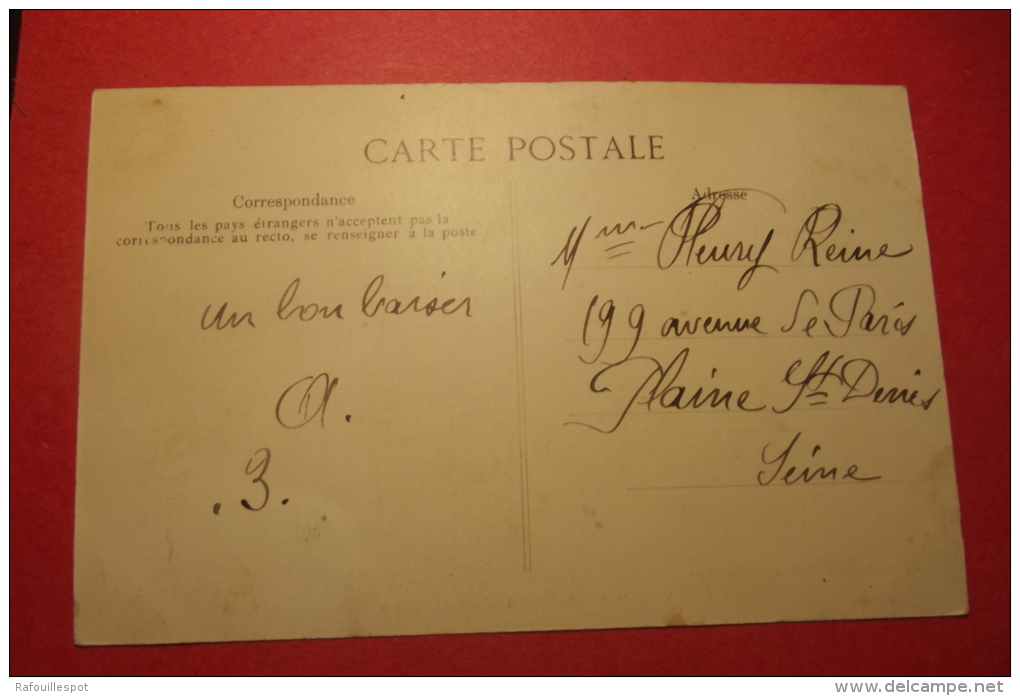 CARTE POSTALE
Correspondance
Tous les pays étrangers n'acceptent pas la
correspondance au recto, se renseigner à la poste
un bon baiser
A.
.3.
Adresse
Mme Fleury Reine
199 avenue de Paris
Plaine St Denis
Seine
Rafouillespot
www.delcampe.net